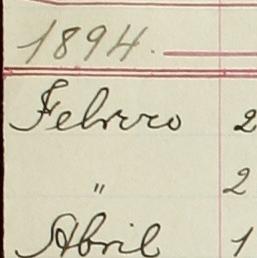 1894.
Febrero 2
" 2
Abril 1